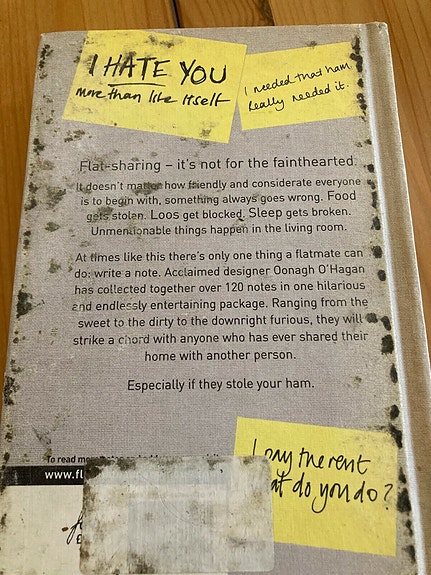 I HATE YOU
more than life itself
I needed that ham.
Really needed it.
Flat-sharing – it's not for the fainthearted.
It doesn't matter how friendly and considerate everyone
is to begin with, something always goes wrong. Food
gets stolen. Loos get blocked. Sleep gets broken.
Unmentionable things happen in the living room.
At times like this there's only one thing a flatmate can
do: write a note. Acclaimed designer Oonagh O'Hagan
has collected together over 120 notes in one hilarious
and endlessly entertaining package. Ranging from the
sweet to the dirty to the downright furious, they will
strike a chord with anyone who has ever shared their
home with another person.
Especially if they stole your ham.
I pay the rent
do you do?
To read
www.fl